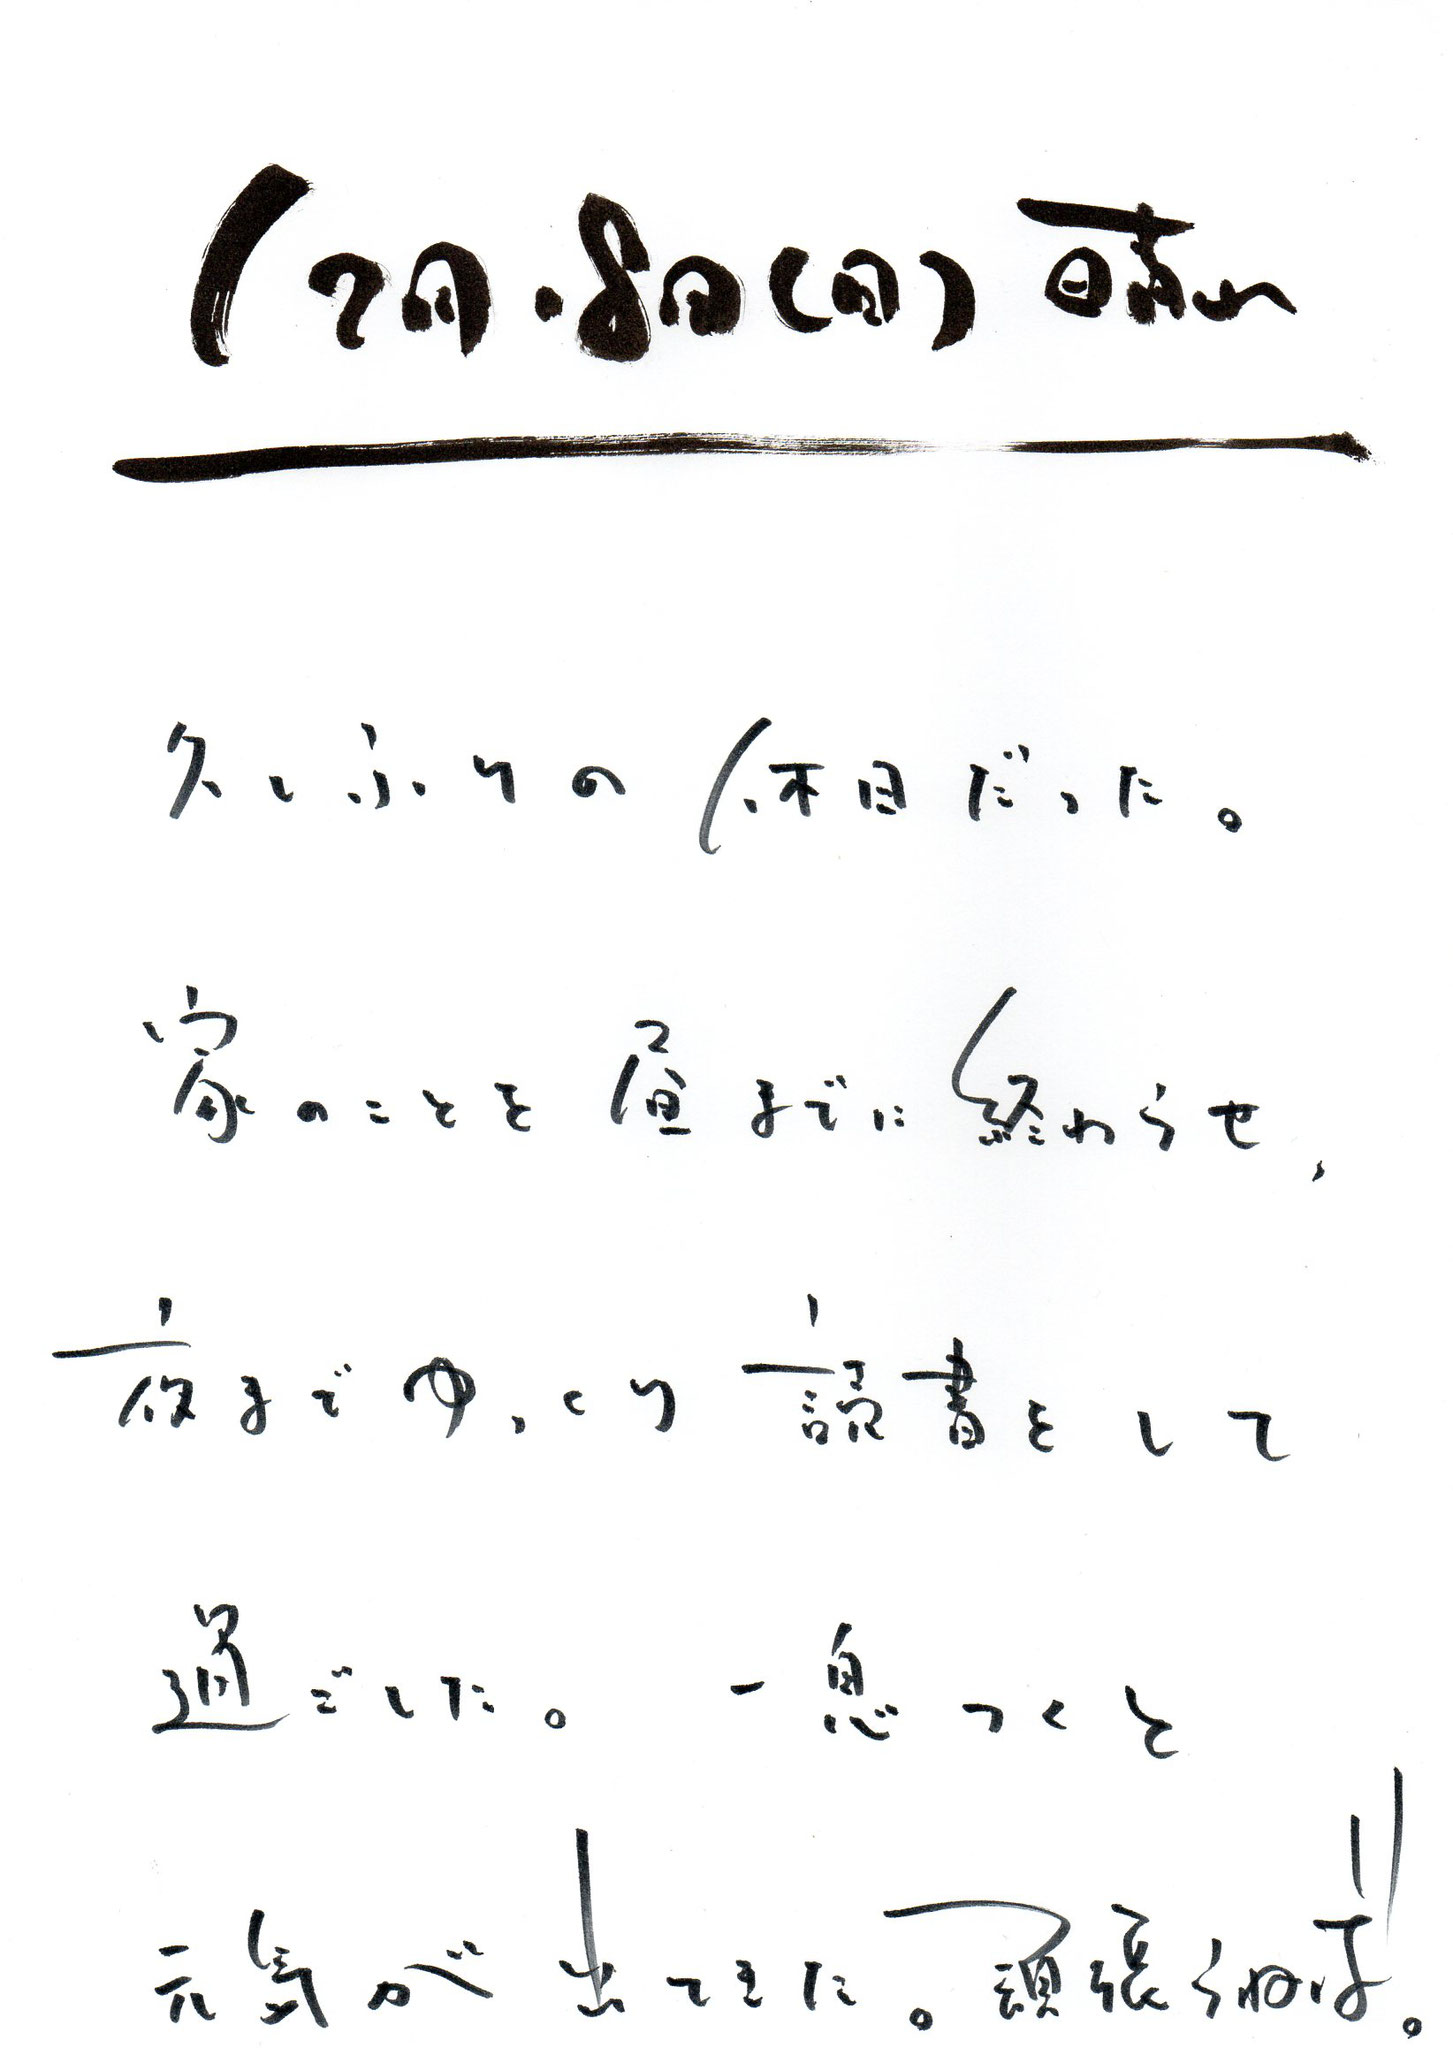 12月.8日(日) 晴れ
久しふりの休日だった。
家のことを昼までに終わらせ、
夜までゆっくり読書をして
過ごした。 一息つくと
元気が出てきた。頑張らねば。